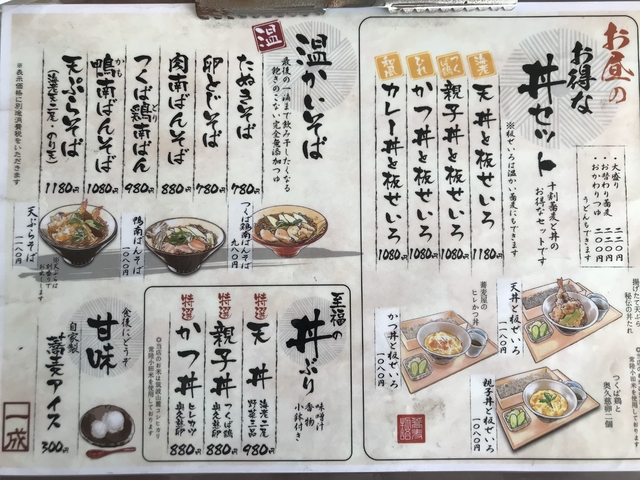 お昼の
お得な
丼セット
十割蕎麦と丼の
お得なセットです
※板せいろは温かい蕎麦にもできます
・大盛り 二〇〇円
・お替わり蕎麦
・おかわりつゆ
うどんもできます
海老
天丼と板せいろ 1180円
つくば鶏
親子丼と板せいろ 1080円
ヒレ
かつ丼と板せいろ 1080円
和風
カレー丼と板せいろ 1080円
揚げたて天ぷら
秘伝の丼たれ
天丼と板せいろ
一一八〇円
蕎麦屋の
ヒレかつ丼
かつ丼と板せいろ
一〇八〇円
つくば鶏と
奥久慈卵二個
親子丼と板せいろ
一〇八〇円
温
温かいそば
最後の一滴まで飲み干したくなる
飽きのこない完全無添加つゆ
たぬきそば 780円
卵とじそば 780円
肉南ばんそば 880円
つくば鶏南ばん 980円
鴨南ばんそば 1080円
天ぷらそば (海老二尾、のり天) 1180円
※表示価格に別途消費税をいただきます
つくば鶏南ばんそば
九八〇円
鴨南ばんそば
一〇八〇円
天ぷらそば
一一八〇円
至福の
丼ぶり
味噌汁
香物
小鉢付き
特選
天丼 海老二尾 野菜三品 980円
特選
親子丼 つくば鶏 奥久慈卵 880円
特選
かつ丼 ヒレカツ 奥久慈卵 880円
食後にどうぞ
甘味
自家製
蕎麦アイス 300円
一成